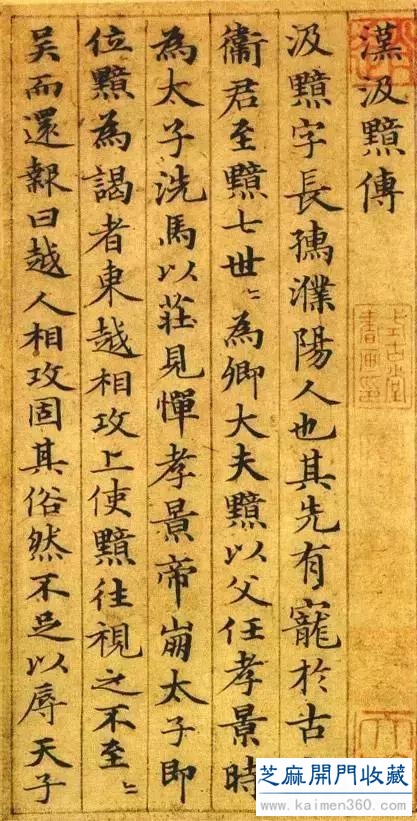 漢汲黯傳
汲黯字長孺濮陽人也其先有寵於古
衞君至黯七世〻為卿大夫黯以父任孝景時
為太子洗馬以莊見憚孝景帝崩太子即
位黯為謁者東越相攻上使黯往視之不至〻
吴而還報曰越人相攻固其俗然不足以辱天子
芝麻開門收藏
www.kaimen360.com